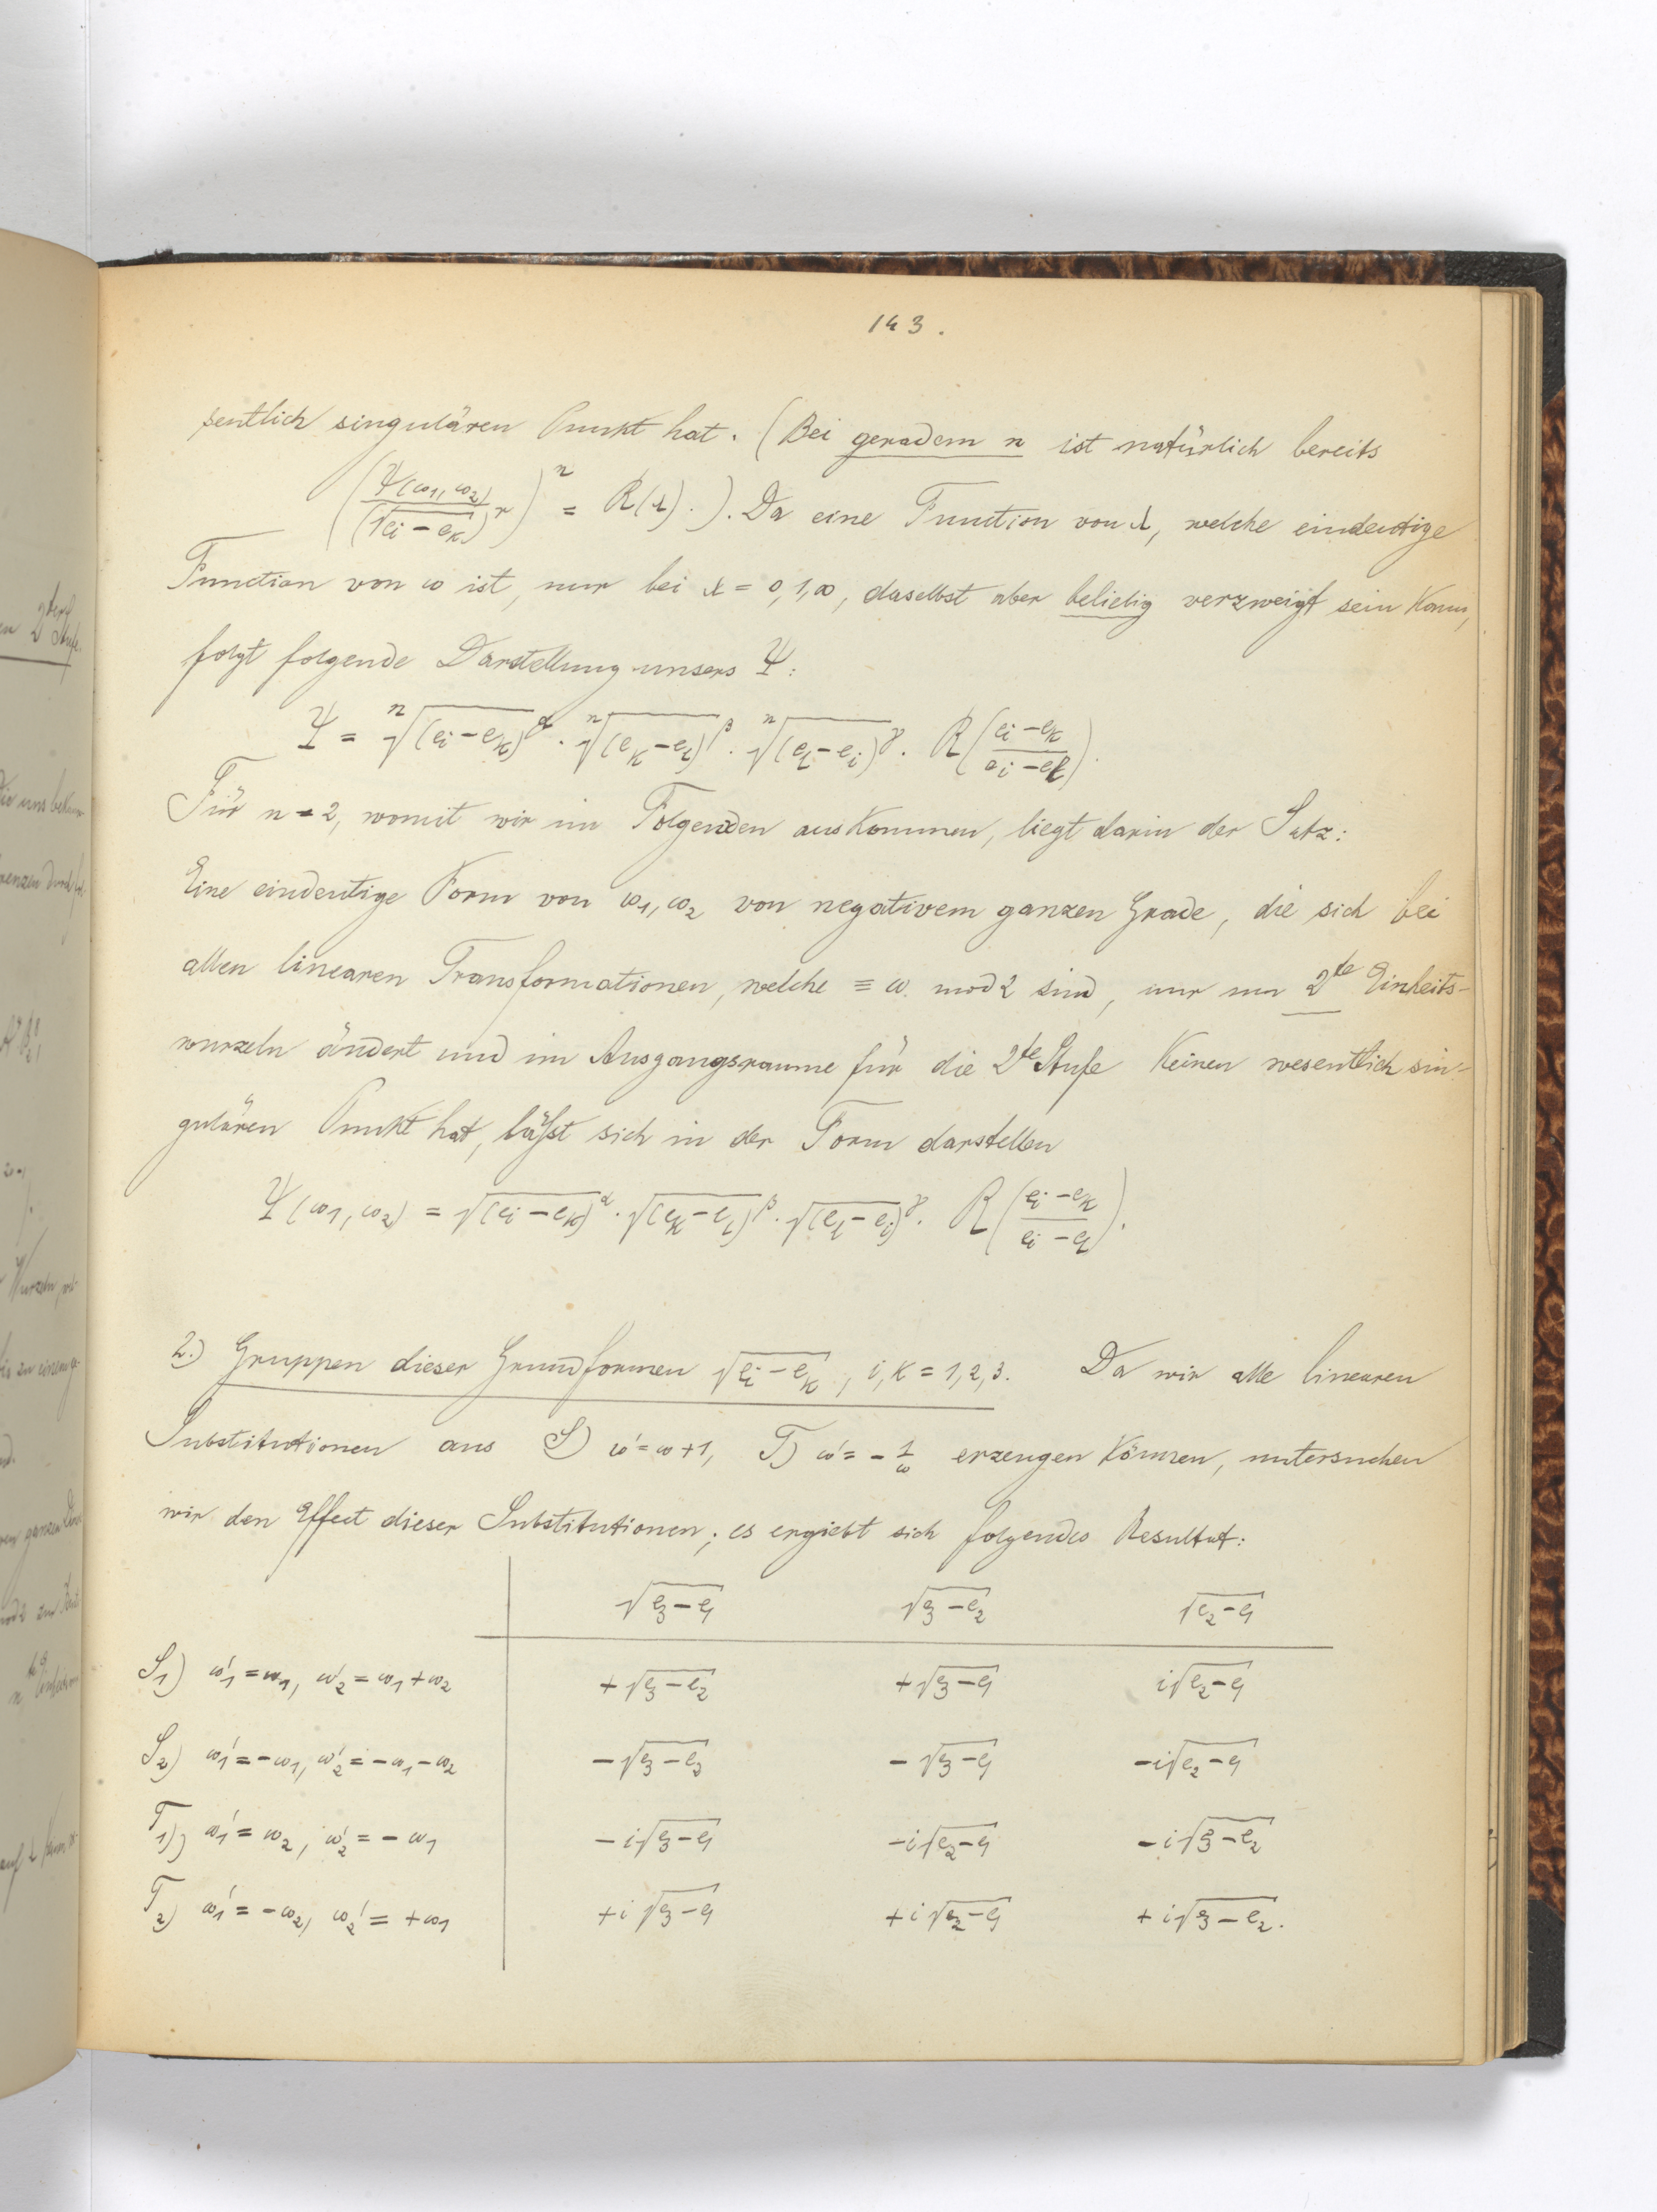 143.
sentlich singulären Punkt hat. (Bei geradem n ist natürlich bereits
(Ψ(ω1, ω2) / (√ei − ek)^r)^n = R(λ).). Da eine Function von λ, welche eindeutige
Function von ω ist, nur bei λ = 0, 1, ∞, daselbst aber beliebig verzweigt sein kann,
folgt folgende Darstellung unsers Ψ:
Ψ = ⁿ√(ei − ek)^α · ⁿ√(ek − el)^β · ⁿ√(el − ei)^γ · R((ei − ek)/(ei − el)).
Für n = 2, womit wir im Folgenden auskommen, liegt darin der Satz:
Eine eindeutige Form von ω1, ω2 von negativem ganzen Grade, die sich bei
allen linearen Transformationen, welche ≡ ω mod 2 sind, nur um 2te Einheits-
wurzeln ändert und im Ausgangsraume für die 2te Stufe keinen wesentlich sin-
gulären Punkt hat, läßt sich in der Form darstellen
Ψ(ω1, ω2) = √(ei − ek)^α · √(ek − el)^β · √(el − ei)^γ · R((ei − ek)/(ei − el)).
2.) Gruppen dieser Grundformen √ei − ek, i, k = 1, 2, 3. Da wir alle linearen
Substitutionen aus S) ω' = ω + 1, T) ω' = − 1/ω erzeugen können, untersuchen
wir den Effect dieser Substitutionen; es ergiebt sich folgendes Resultat:
√e3 − e1 √e3 − e2 √e2 − e1
S1) ω1' = ω1, ω2' = ω1 + ω2 + √e3 − e2 + √e3 − e1 i√e2 − e1
S2) ω1' = −ω1, ω2' = −ω1 − ω2 − √e3 − e2 − √e3 − e1 −i√e2 − e1
T1) ω1' = ω2, ω2' = − ω1 − i√e3 − e1 −i√e2 − e1 − i√e3 − e2
T2) ω1' = −ω2, ω2' = +ω1 + i √e3 − e1 + i √e2 − e1 + i√e3 − e2.